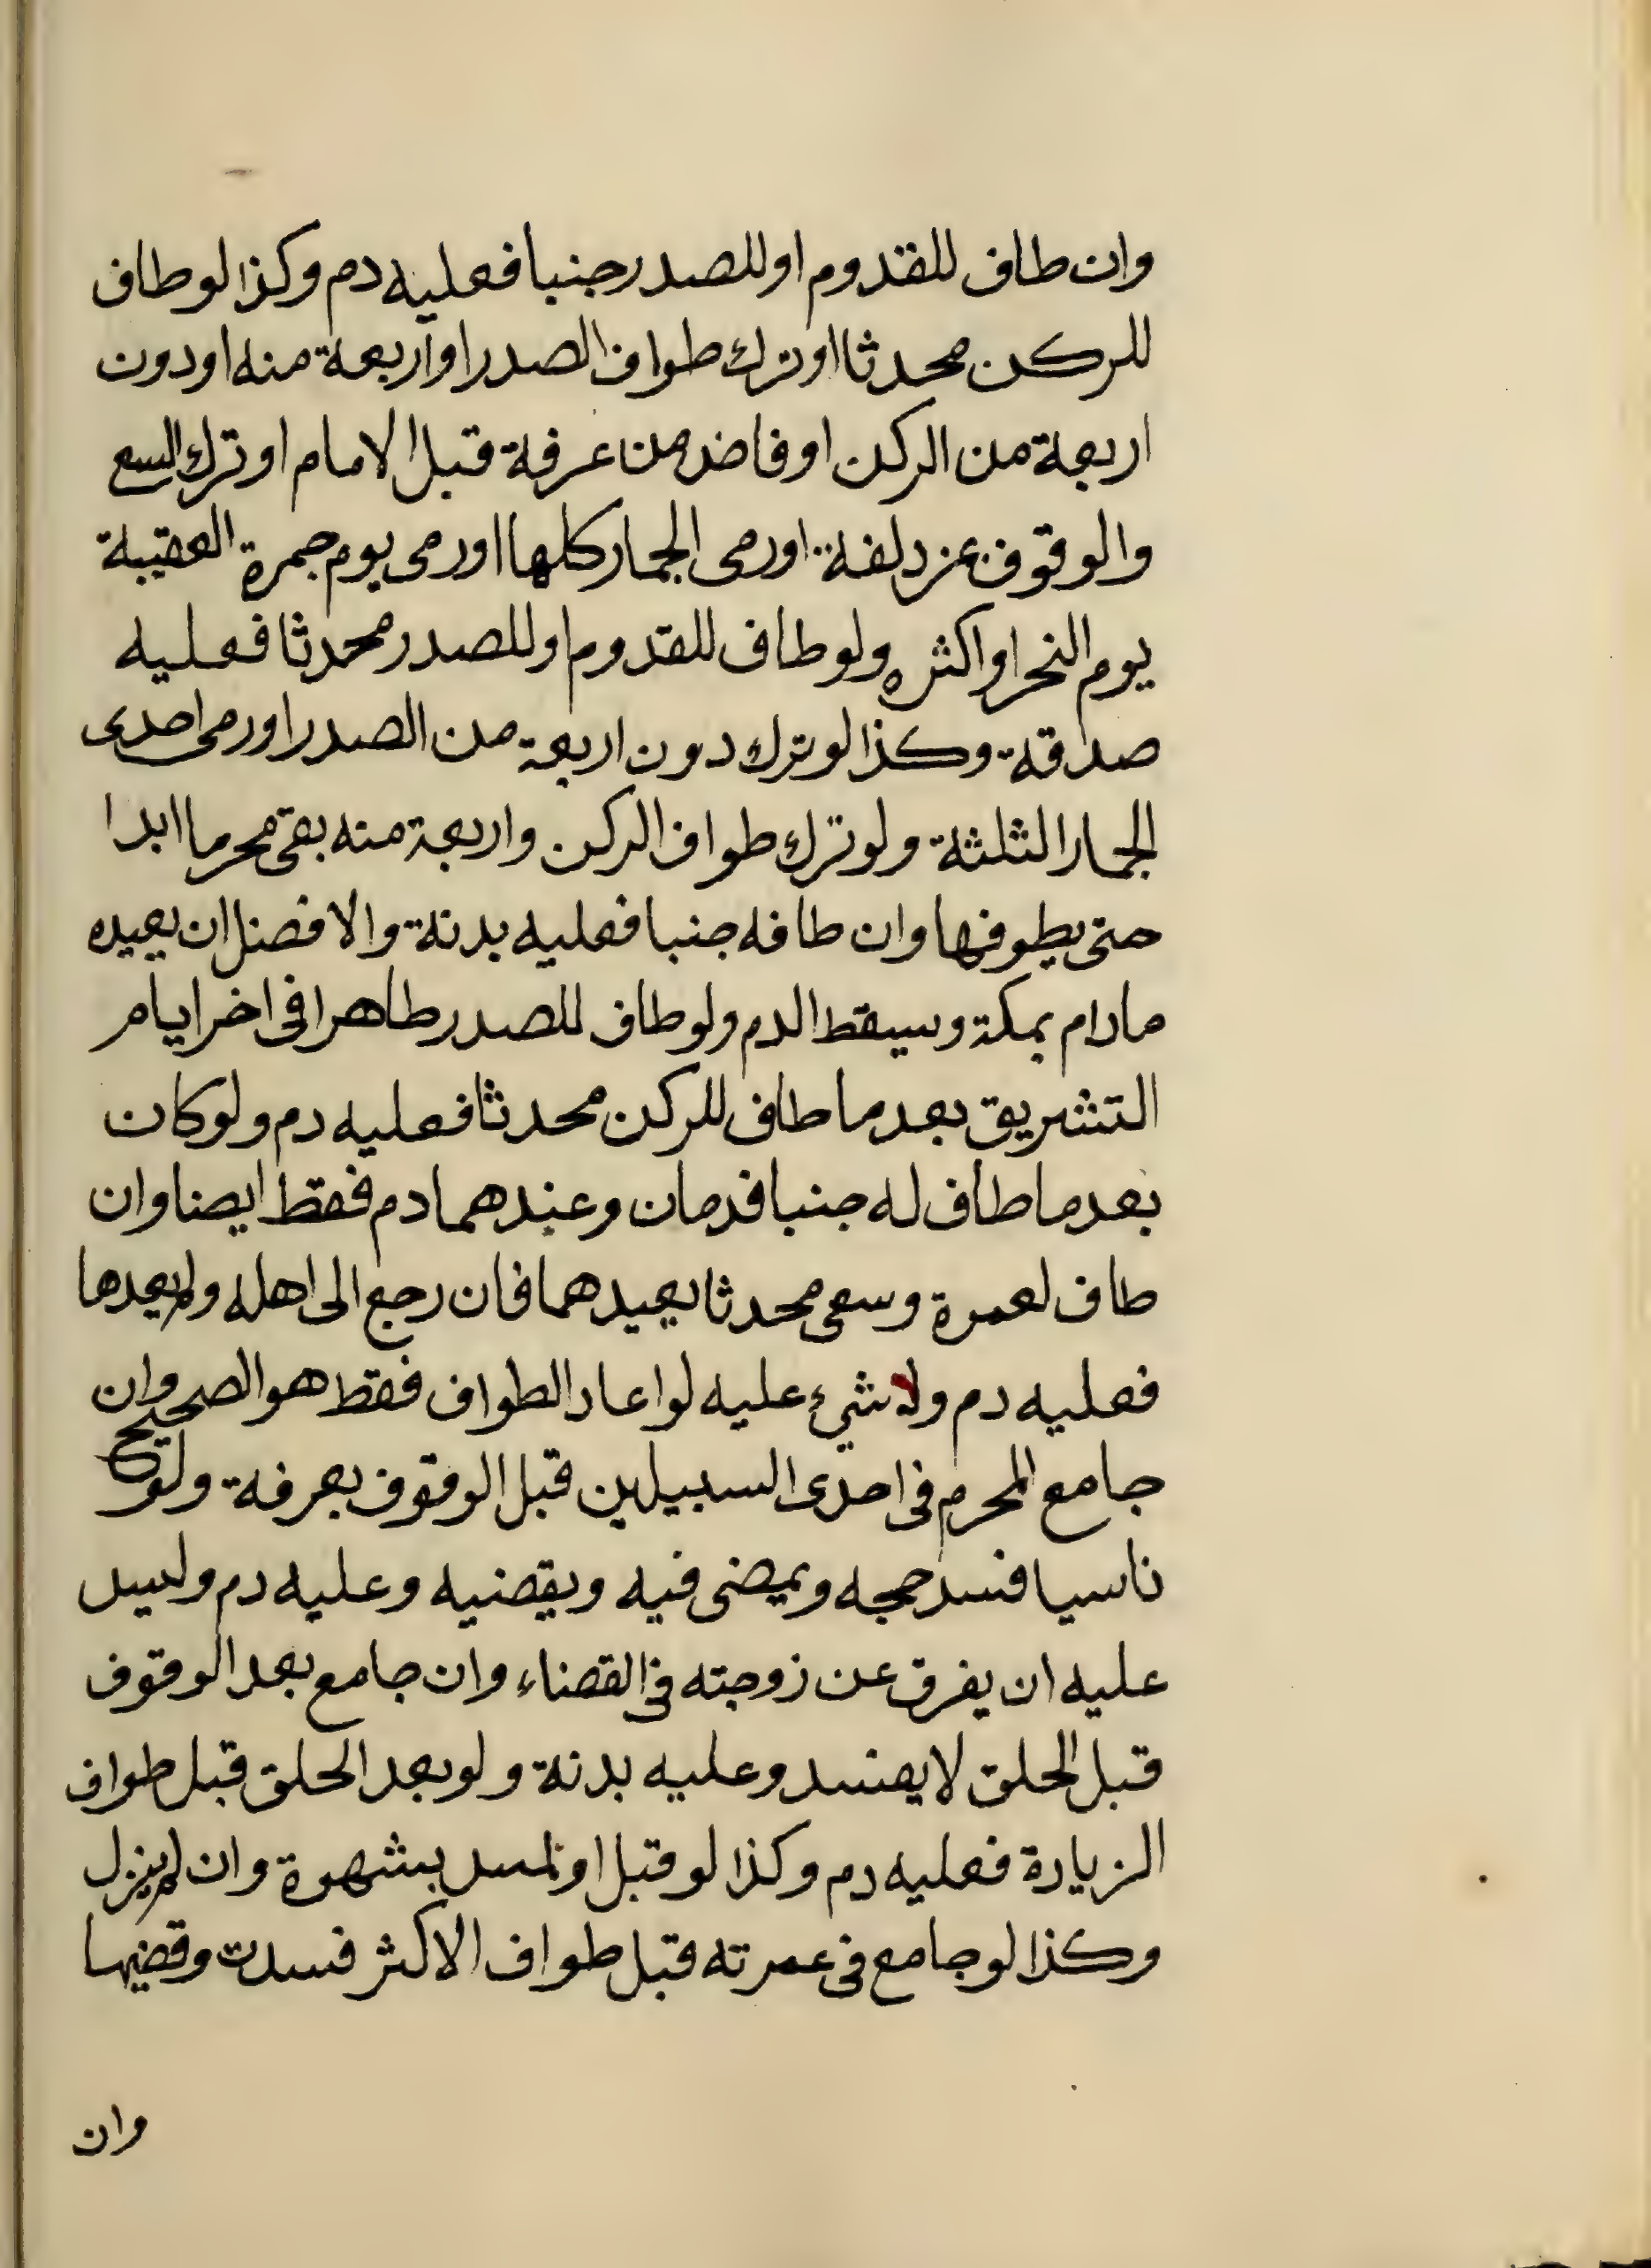 وان طاف للقدوم او للصدر جنبا فعليه دم وكذا لو طاف
للركن محدثا او ترك طواف الصدر او اربعة منه او دون
اربعة من الركن او فاض من عرفة قبل الامام او ترك السع
والوقوف بمزدلفة او رمى الجمار كلها او رمى يوم جمرة العقبة
يوم النحر او اكثره ولو طاف للقدوم او للصدر محدثا فعليه
صداقة وكذا لو ترك دون اربعة من الصدر او رمى احدى
الجمار الثلثة ولو ترك طواف الركن واربعة منه بقى محرما ابدا
حتى يطوفها وان طافه جنبا فعليه بدنة والافضل ان يعيده
مادام بمكة وسيقط الدم ولو طاف للصدر طاهرا فى اخر ايام
التشريق بعد ما طاف للركن محدثا فعليه دم ولو كان
بعد ما طاف له جنبا فدمان وعندهما دم فقط ايضا وان
طاف لعمرة وسعى محدثا يعيدهما فان رجع الى اهله ولم يعدها
فعليه دم ولا شيء عليه لو اعاد الطواف فقط هو الصحيح وان
جامع المحرم فى احدى السبيلين قبل الوقوف بعرفة ولو
ناسيا فسد حجه ويمضى فيه ويقضيه وعليه دم وليس
عليه ان يفرق عن زوجته فى القضاء وان جامع بعد الوقوف
قبل الحلق لا يفسد وعليه بدنة ولو بعد الحلق قبل طواف
الزيارة فعليه دم وكذا لو قبل او لمس بشهوة وان لم ينزل
وكذا لو جامع فى عمرته قبل طواف الاكثر فسدت وقضيها
وان